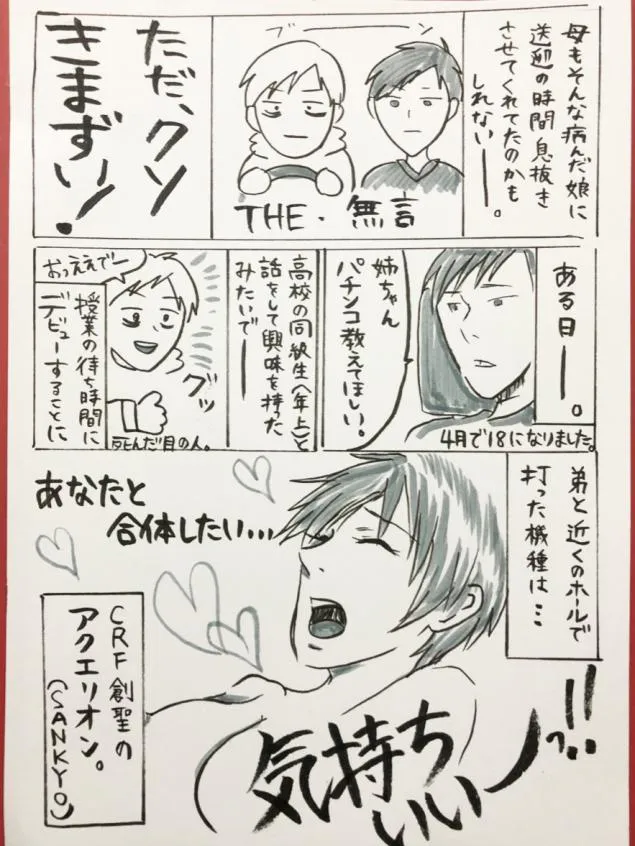 母もそんな病んだ娘に
送迎の時間息抜き
させてくれてたのかも
しれない――。
ブーーン
THE・無言
ただ、クソ
きまずい!
ある日――。
姉ちゃん
パチンコ教えてほしい。
4月で18になりました。
高校の同級生(年上)と
話をして興味を持った
みたいで――
おっええでー
グッ
死んだ目の人。
授業の待ち時間に
デビューすることに
弟と近くのホールで
打った機種は…
あなたと
合体したい…
気持ち
いいーーっ!!
CRF創聖の
アクエリオン。
(SANKYO)